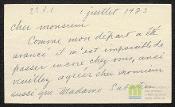 1 juillet 1923
cher monsieur
Comme mon départ a été
avancé il m'est impossible de
passer encore chez vous, ainsi
veuillez agréer cher monsieur
ainsi que Madame